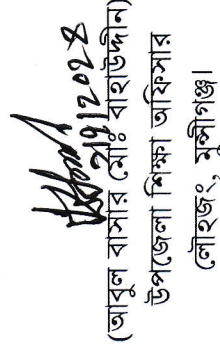 ২৭/১/২০২৪
(আবুল বাসার মোঃ বাহাউদ্দীন)
উপজেলা শিক্ষা অফিসার
লৌহজং, মুন্সীগঞ্জ।